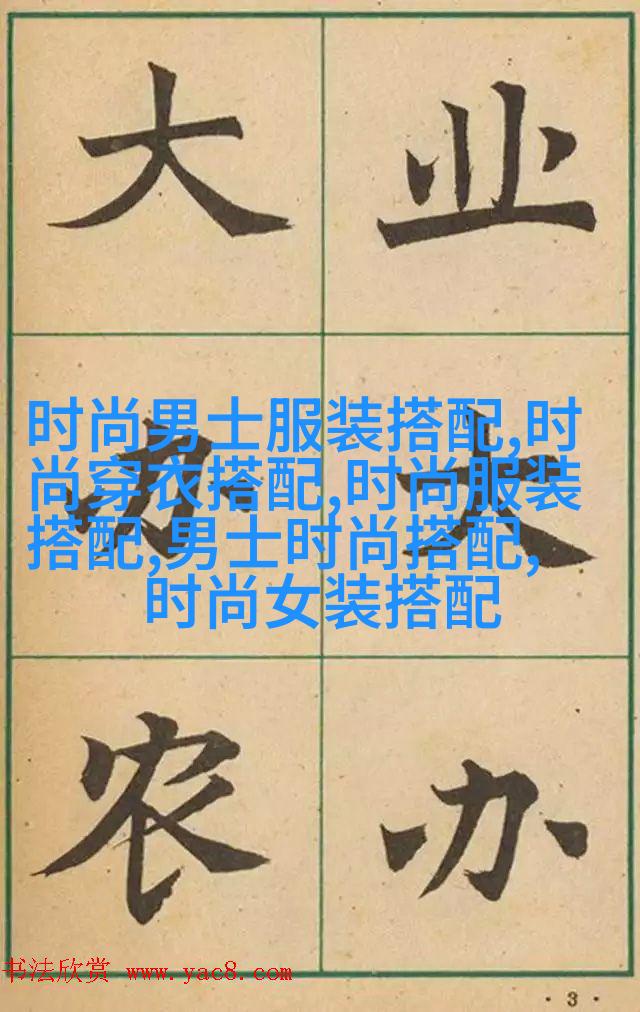 大办农
业大办
时尚男士服装搭配,时
尚穿衣搭配,时尚服装
搭配,男士时尚搭配,
时尚女装搭配
书法欣赏 www.yac8.com
·3·